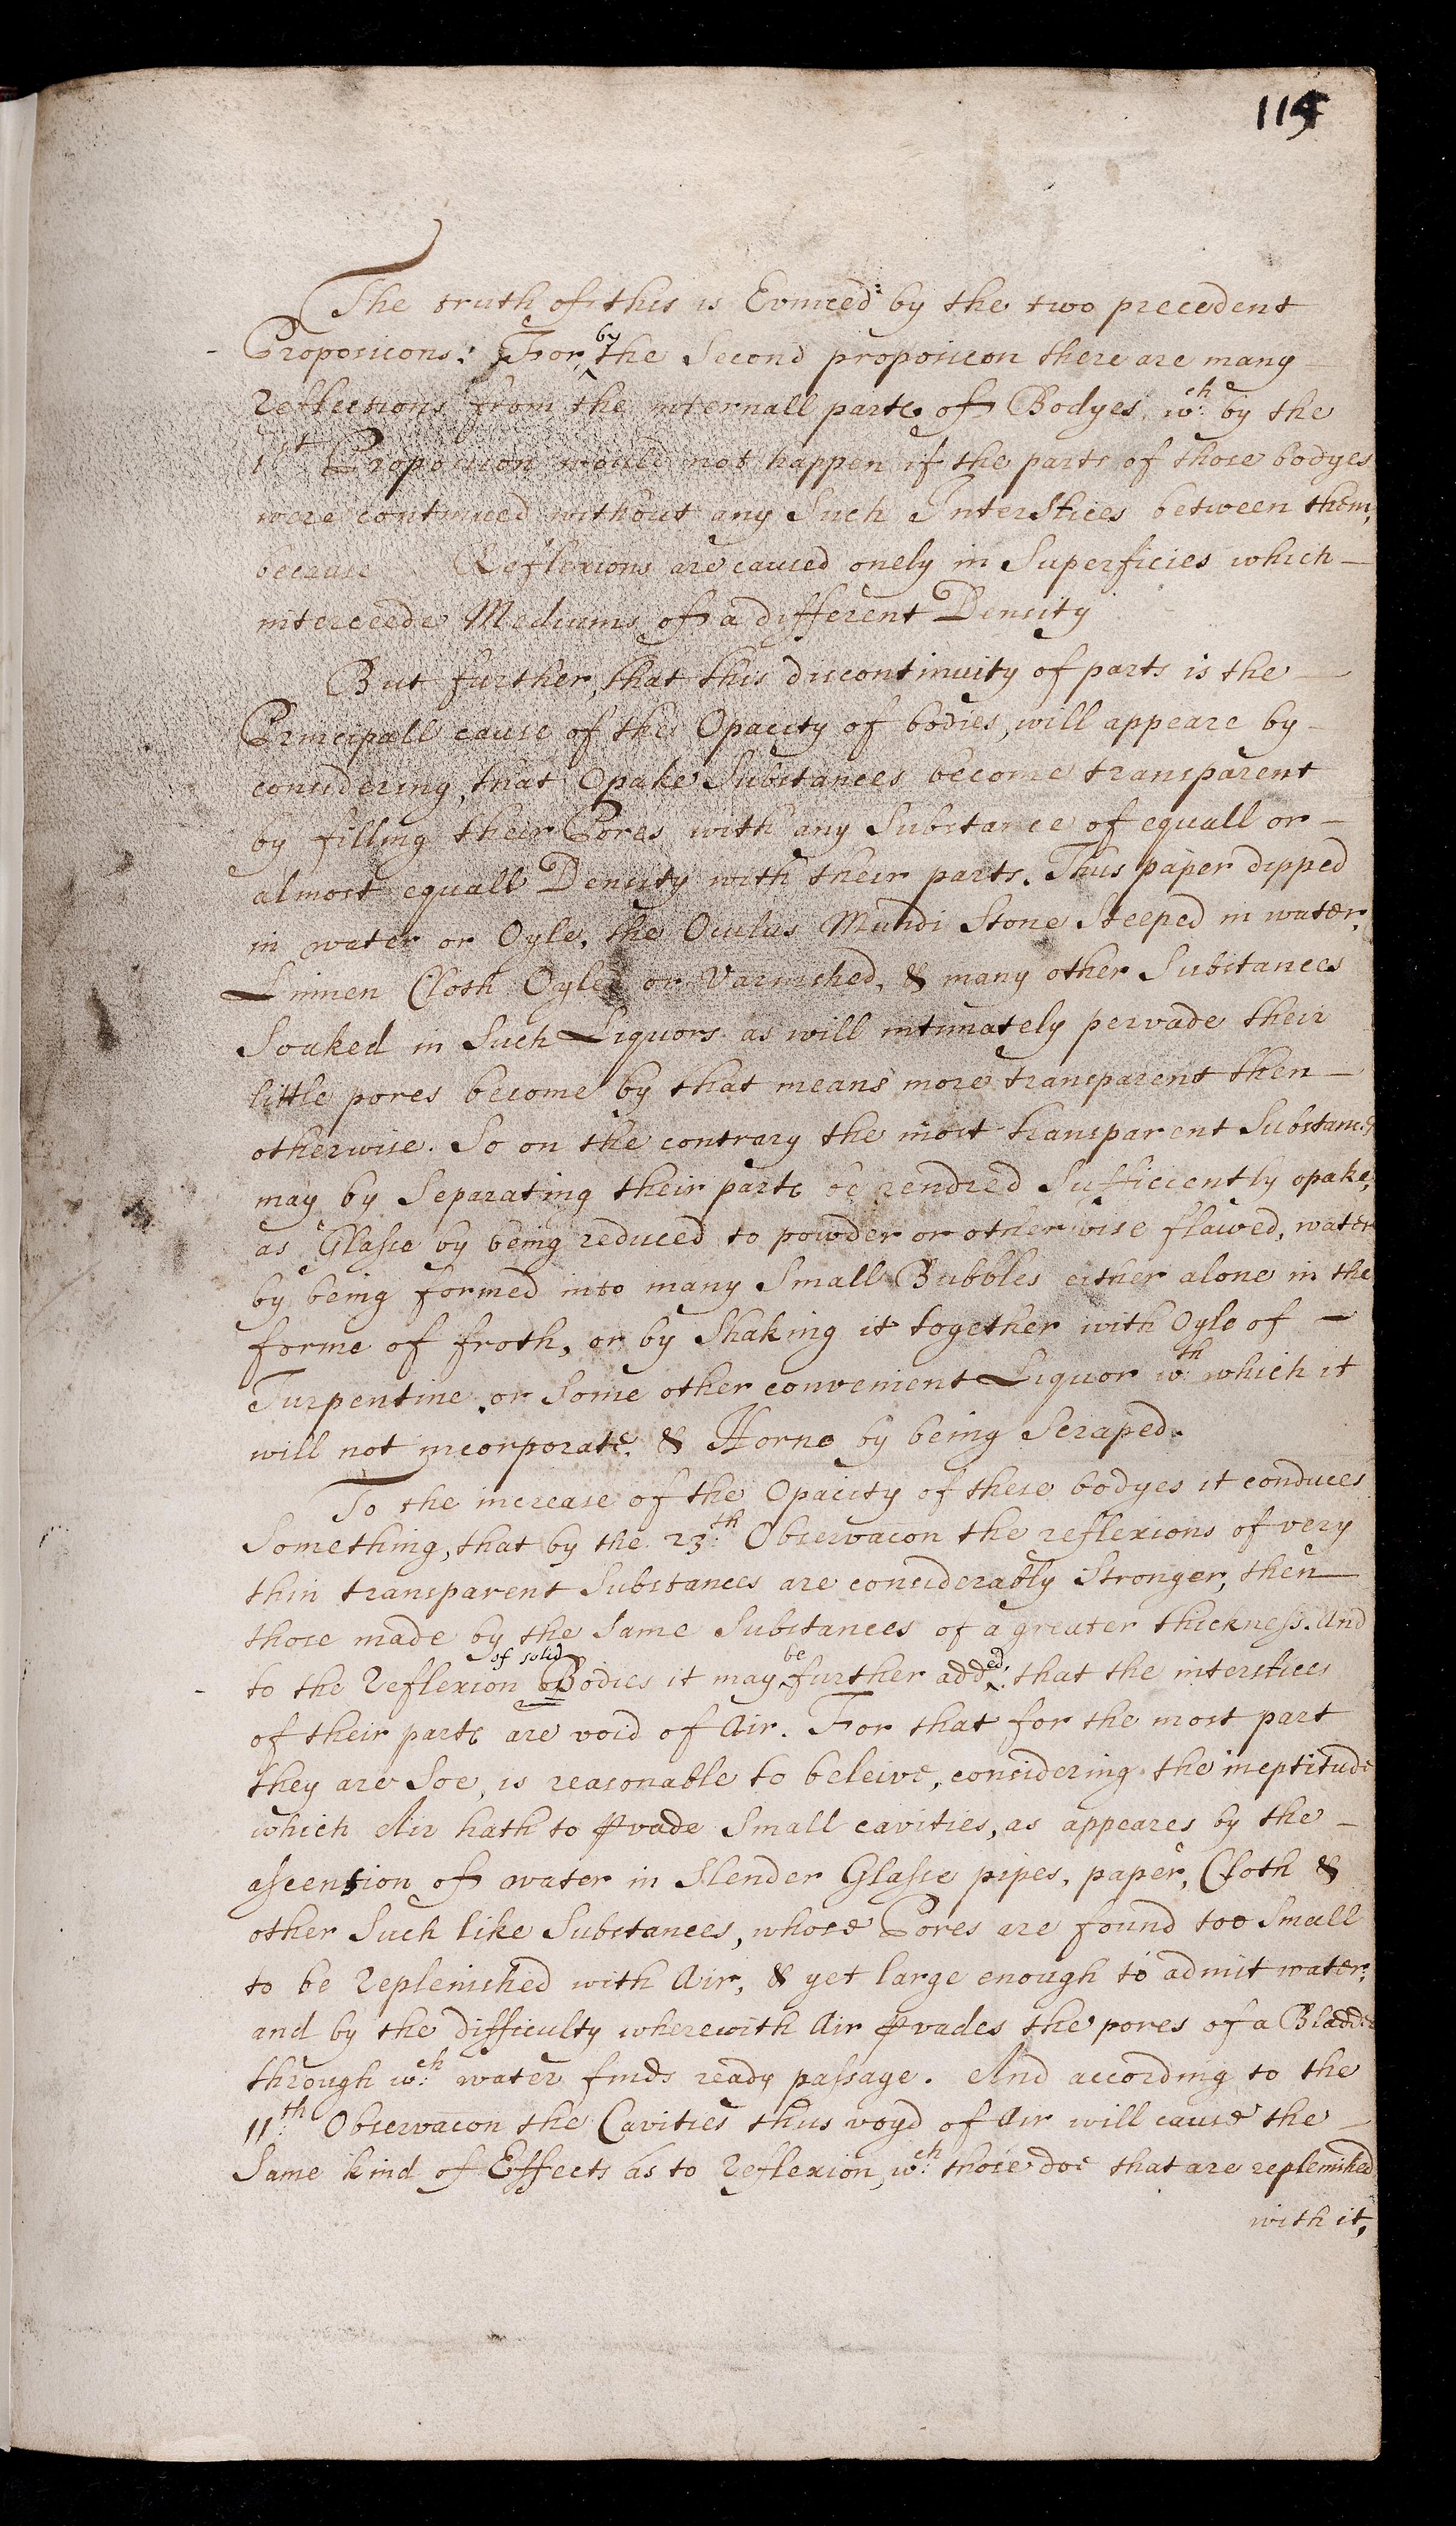 115
The truth of this is Evinced by the two precedent
Proposicons: For by the Second proposicon there are many
Reflections from the internall parts of Bodyes, wch by the
1st Proposicon would not happen if the parts of those bodyes
were continued without any Such Interstices between them,
because Reflexions are caused onely in Superficies which
interceede Mediums of a different Density
But further, that this discontinuity of parts is the
Principall cause of the Opacity of bodies, will appeare by
considering, that Opake Substances become transparent
by filling their Pores with any Substance of equall or
almost equall Density with their parts. Thus paper dipped
in water or Oyle, the Oculus Mundi Stone Steeped in water,
Linnen Cloth Oyled or Varnished, & many other Substances
Soaked in Such Liquors as will intimately pervade their
little pores become by that means more transparent then
otherwise. So on the contrary the most transparent Substances
may by Separating their parts be rendred Sufficiently opake,
as Glasse by being reduced to powder or otherwise flawed, water
by being formed into many Small Bubbles either alone in the
forme of froth, or by Shaking it together with Oyle of
Turpentine or Some other convenient Liquor wth which it
will not incorporate, & Horne by being Scraped.
To the increase of the Opacity of these bodyes it conduces
Something, that by the 23th Observacon the reflexions of very
thin transparent Substances are considerably Stronger, then
those made by the Same Substances of a greater thickness. And
to the Reflexion of solid Bodies it may be further added: that the interstices
of their parts are void of Air. For that for the most part
they are Soe, is reasonable to beleive, considering the ineptitude
which Air hath to ꝑvade Small cavities, as appeares by the
ascension of water in Slender Glasse pipes, paper, Cloth &
other Such like Substances, whose Pores are found too Small
to be Replenished with Air, & yet large enough to admit water,
and by the difficulty wherewith Air ꝑvades the pores of a Bladder
through wch water finds ready passage. And according to the
11th Observacon the Cavities thus voyd of Air will cause the
Same kind of Effects as to Reflexion, wch those doe that are replenished
with it,